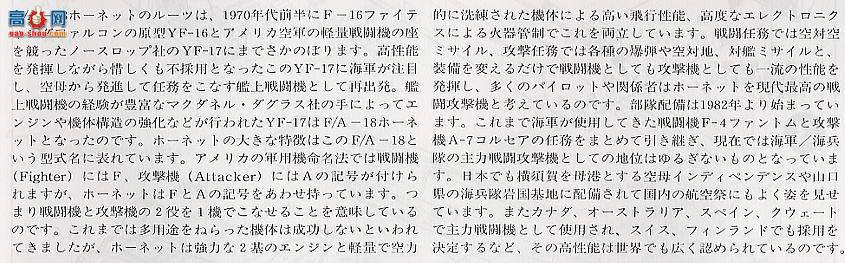 高人网
nap-shop.com
ホーネットのルーツは、1970年代前半にF-16ファイテ
ァルコンの原型YF-16とアメリカ空軍の軽量戦闘機の座
を競ったノースロップ社のYF-17にまでさかのぼります。高性能
を発揮しながら惜しくも不採用となったこのYF-17に海軍が注目
し、空母から発進して任務をこなす艦上戦闘機として再出発。艦
上戦闘機の経験が豊富なマクダネル・ダグラス社の手によってエ
ンジンや機体構造の強化などが行われたYF-17はF/A-18ホーネ
ットとなったのです。ホーネットの大きな特徴はこのF/A-18と
いう型式名に表れています。アメリカの軍用機命名法では戦闘機
(Fighter)にはF、攻撃機(Attacker)にはAの記号が付けら
れますが、ホーネットはFとAの記号をあわせ持っています。つ
まり戦闘機と攻撃機の2役を1機でこなせることを意味している
のです。これまでは多用途をねらった機体は成功しないといわれ
てきましたが、ホーネットは強力な2基のエンジンと軽量で空力
的に洗練された機体による高い飛行性能、高度なエレクトロニク
スによる火器管制でこれを両立しています。戦闘任務では空対空
ミサイル、攻撃任務では各種の爆弾や空対地、対艦ミサイルと、
装備を変えるだけで戦闘機としても攻撃機としても一流の性能を
発揮し、多くのパイロットや関係者はホーネットを現代最高の戦
闘攻撃機と考えているのです。部隊配備は1982年より始まってい
ます。これまで海軍が使用してきた戦闘機F-4ファントムと攻撃
機A-7コルセアの任務をまとめて引き継ぎ、現在では海軍/海兵
隊の主力戦闘攻撃機としての地位はゆるぎないものとなっていま
す。日本でも横須賀を母港とする空母インディペンデンスや山口
県の海兵隊岩国基地に配備されて国内の航空祭にもよく姿を見せ
ています。またカナダ、オーストラリア、スペイン、クウェート
で主力戦闘機として使用され、スイス、フィンランドでも採用を
決定するなど、その高性能は世界でも広く認められているのです。